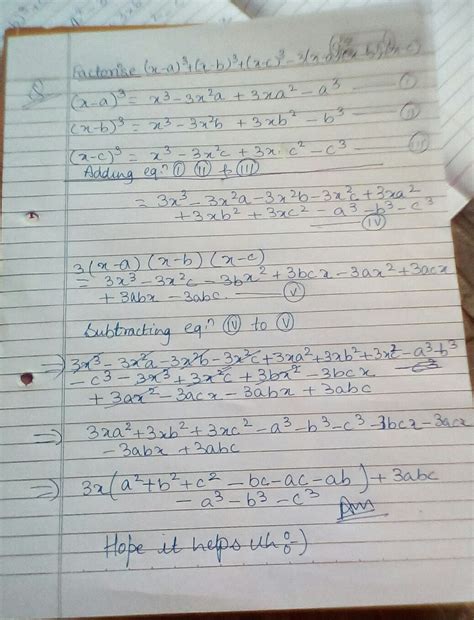 Factorise (x-a)³+(x-b)³+(x-c)³ - 3(x-a)(x-b)(x-c)
(x-a)³ = x³-3x²a + 3xa² - a³ — Ⓘ
(x-b)³ = x³-3x²b + 3xb² - b³ — Ⅱ
(x-c)³ = x³-3x²c + 3x c² - c³ — Ⅲ
Adding eqⁿ Ⓘ Ⅱ & Ⅲ
= 3x³-3x²a-3x²b-3x²c+3xa²
+3xb²+3xc²-a³-b³-c³
— Ⅳ
3(x-a)(x-b)(x-c)
= 3x³-3x²c-3bx²+3bcx-3ax²+3acx
+3abx-3abc. — Ⓥ
Subtracting eqⁿ Ⅳ to Ⓥ
⇒ 3x³-3x²a-3x²b-3x²c+3xa²+3xb²+3xc²-a³-b³
-c³-3x³+3x²c+3bx²-3bcx
+3ax²-3acx-3abx+3abc
⇒ 3xa²+3xb²+3xc²-a³-b³-c³-3bcx-3acx
-3abx+3abc
⇒ 3x(a²+b²+c²-bc-ac-ab)+3abc
-a³-b³-c³
Ans
Hope it helps uh :-)